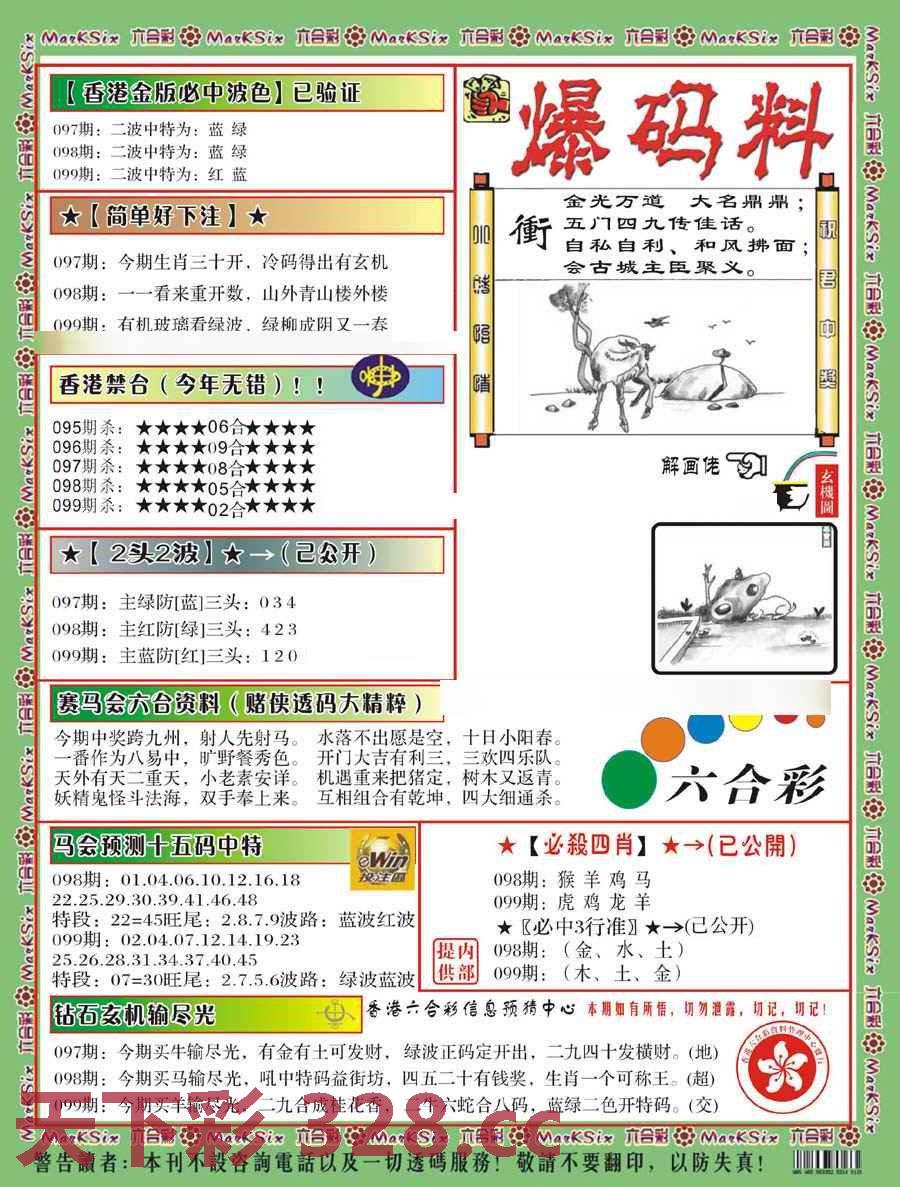 MarKSix 六合彩 MarKSix 六合彩 MarKSix 六合彩 MarKSix 六合彩 MarKSix 六合彩
【香港金版必中波色】已验证
097期：二波中特为：蓝 绿
098期：二波中特为：蓝 绿
099期：二波中特为：红 蓝
★【简单好下注】★
097期：今期生肖三十开，冷码得出有玄机
098期：一一看来重开数，山外青山楼外楼
099期：有机玻璃看绿波，绿柳成阴又一春
香港禁合（今年无错）！！
095期杀：★★★★06合★★★★
096期杀：★★★★09合★★★★
097期杀：★★★★08合★★★★
098期杀：★★★★05合★★★★
099期杀：★★★★02合★★★★
★【2头2波】★→（已公开）
097期：主绿防[蓝]三头：0 3 4
098期：主红防[绿]三头：4 2 3
099期：主蓝防[红]三头：1 2 0
爆码料
衝
金光万道 大名鼎鼎；
五门四九传佳话。
自私自利、和风拂面；
会古城主臣聚义。
祝君中奖
解画佬
玄機圖
赛马会六合资料（赌侠透码大精粹）
今期中奖跨九州，射人先射马。 水落不出愿是空，十日小阳春。
一番作为八易中，旷野餐秀色。 开门大吉有利三，三欢四乐队。
天外有天二重天，小老素安详。 机遇重来把猪定，树木又返青。
妖精鬼怪斗法海，双手奉上来。 互相组合有乾坤，四大细通杀。
六合彩
马会预测十五码中特
eWin
投注网
098期：01.04.06.10.12.16.18
22.25.29.30.39.41.46.48
特段：22=45旺尾：2.8.7.9波路：蓝波红波
099期：02.04.07.12.14.19.23
25.26.28.31.34.37.40.45
特段：07=30旺尾：2.7.5.6波路：绿波蓝波
★【必殺四肖】★→（已公開）
098期：猴 羊 鸡 马
099期：虎 鸡 龙 羊
★〖必中3行准〗★→(已公开)
098期：（金、水、土）
099期：（木、土、金）
内部提供
钻石玄机输尽光
香港六合彩信息预猜中心
本期如有所悟，切勿泄露，切记，切记！
097期：今期买牛输尽光，有金有土可发财，绿波正码定开出，二九四十发横财。(地)
098期：今期买马输尽光，吼中特码益街坊，四五二十有钱奖，生肖一个可称王。(超)
099期：今期买羊输尽光，二九合成桂花香，二牛六蛇合八码，蓝绿二色开特码。(交)
天下彩 328.cc
MarKSix 六合彩 MarKSix 六合彩 MarKSix 六合彩 MarKSix 六合彩 MarKSix 六合彩
警告讀者：本刊不設咨詢電話以及一切透碼服務！敬請不要翻印，以防失真！